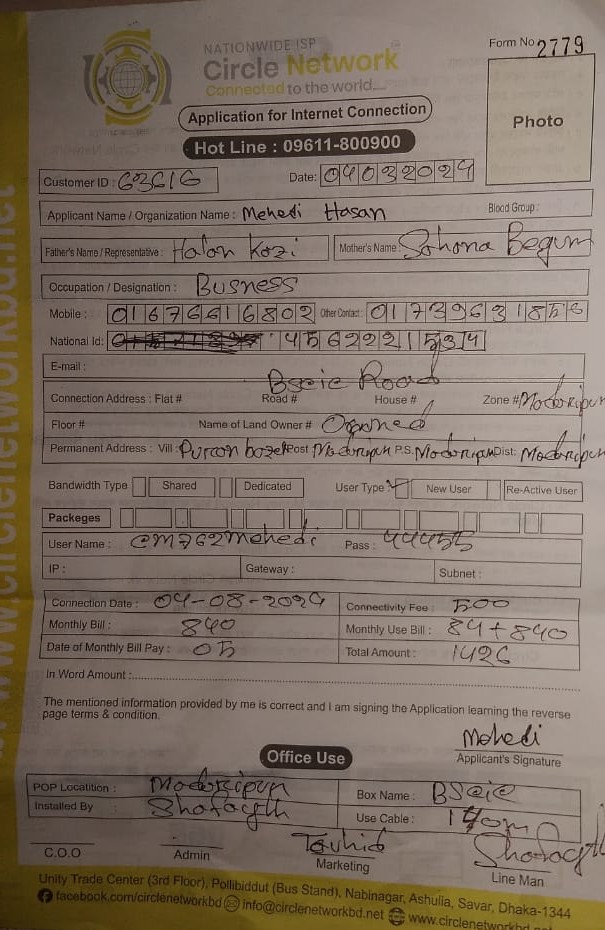 NATIONWIDE ISP
Circle Network
Connected to the world....
Form No 2779
Application for Internet Connection
Hot Line : 09611-800900
Photo
Customer ID : 63616 Date:
Applicant Name / Organization Name : Mehedi Hasan Blood Group :
Father's Name / Representative : Halan Kozi Mother's Name : Sohona Begum
Occupation / Designation : Busness
Mobile : 01676616802 Other Contact :
National Id: 4562221534
E-mail :
Bscic Road
Connection Address : Flat # Road # House # Zone # Modoripur
Floor # Name of Land Owner # Owned
Permanent Address : Vill : Post Modoripur P.S. Modoripur Dist: Modoripur
Bandwidth Type Shared Dedicated User Type : New User Re-Active User
Packeges
User Name : cm762mehedi Pass : 44455
IP : Gateway : Subnet :
Connection Date : 04-08-2024 Connectivity Fee : 500
Monthly Bill : 840 Monthly Use Bill : 84+840
Date of Monthly Bill Pay : 05 Total Amount : 1426
In Word Amount :
The mentioned information provided by me is correct and I am signing the Application learning the reverse
page terms & condition.
Mehedi
Applicant's Signature
Office Use
POP Locatition : Modoripur Box Name : BScic
Installed By : Use Cable : 140m
C.O.O Admin Touhid
Marketing
Line Man
Unity Trade Center (3rd Floor), Pollibiddut (Bus Stand), Nabinagar, Ashulia, Savar, Dhaka-1344
facebook.com/circlenetworkbd info@circlenetworkbd.net www.circlenetworkbd.net
www.circlenetworkbd.net